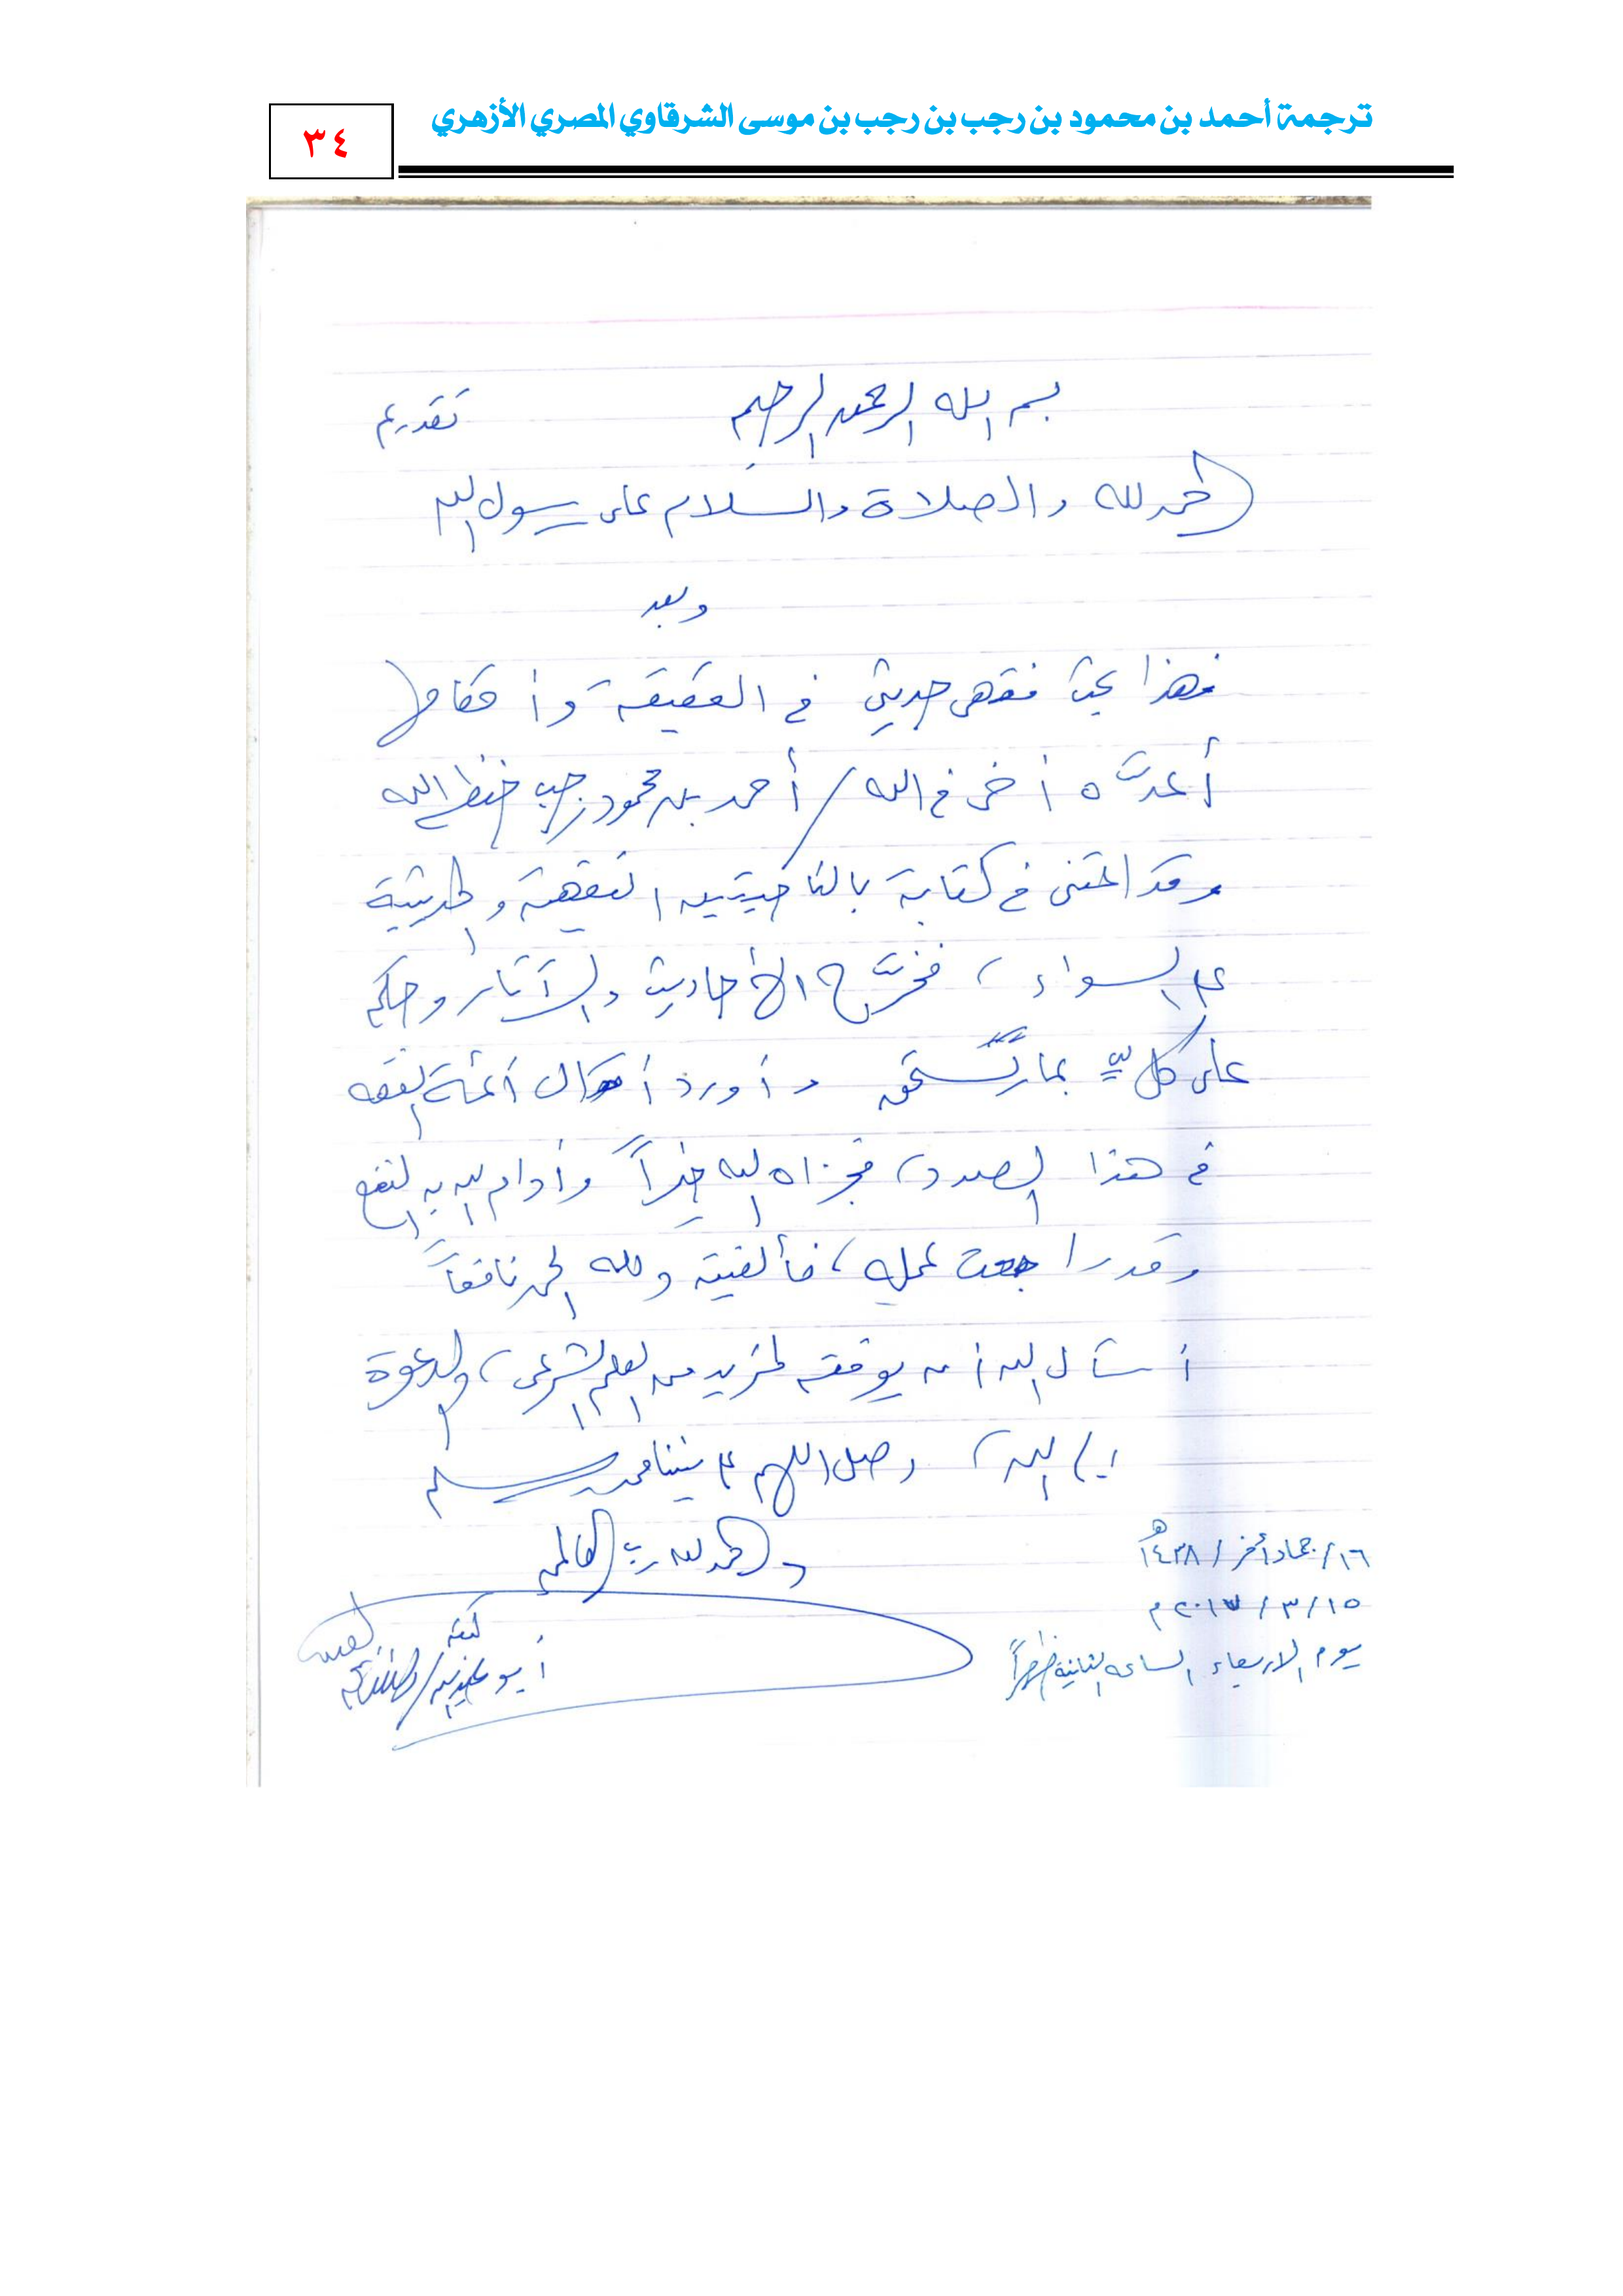 ترجمة أحمد بن محمود بن رجب بن رجب بن موسى الشرقاوي المصري الأزهري
٣٤
بسم الله الرحمن الرحيم
تقديم
الحمد لله والصلاة والسلام على رسول الله
وبعد
فهذا بحث فقهى حديثي في العقيقة وأحكامها
أعدَّه أخى في الله / أحمد بن محمود رجب حفظه الله
وقد اعتنى في كتابة بالناحيتين الفقهية والحديثية
على السواء، فخرَّج الأحاديث والآثار وحكم
على كلٍّ بما يستحق وأورد أقوال أئمة الفقه
في هذا الصدد، فجزاه الله خيراً وأدام الله به النفع
وقد راجعت عمله، فألفيته ولله الحمد نافعاً
أسأل الله أن يوفقه لمزيد من العلم الشرعى، والدعوة
إلى الله، وصل اللهم على نبينا محمد وسلم
والحمد لله رب العالمين
١٦/ جماد أخر / ١٤٣٨ هـ
١٥ / ٣ / ٢٠١٧ م
يوم الاربعاء الساعه الثانية ظهراً
كتبه
أبو